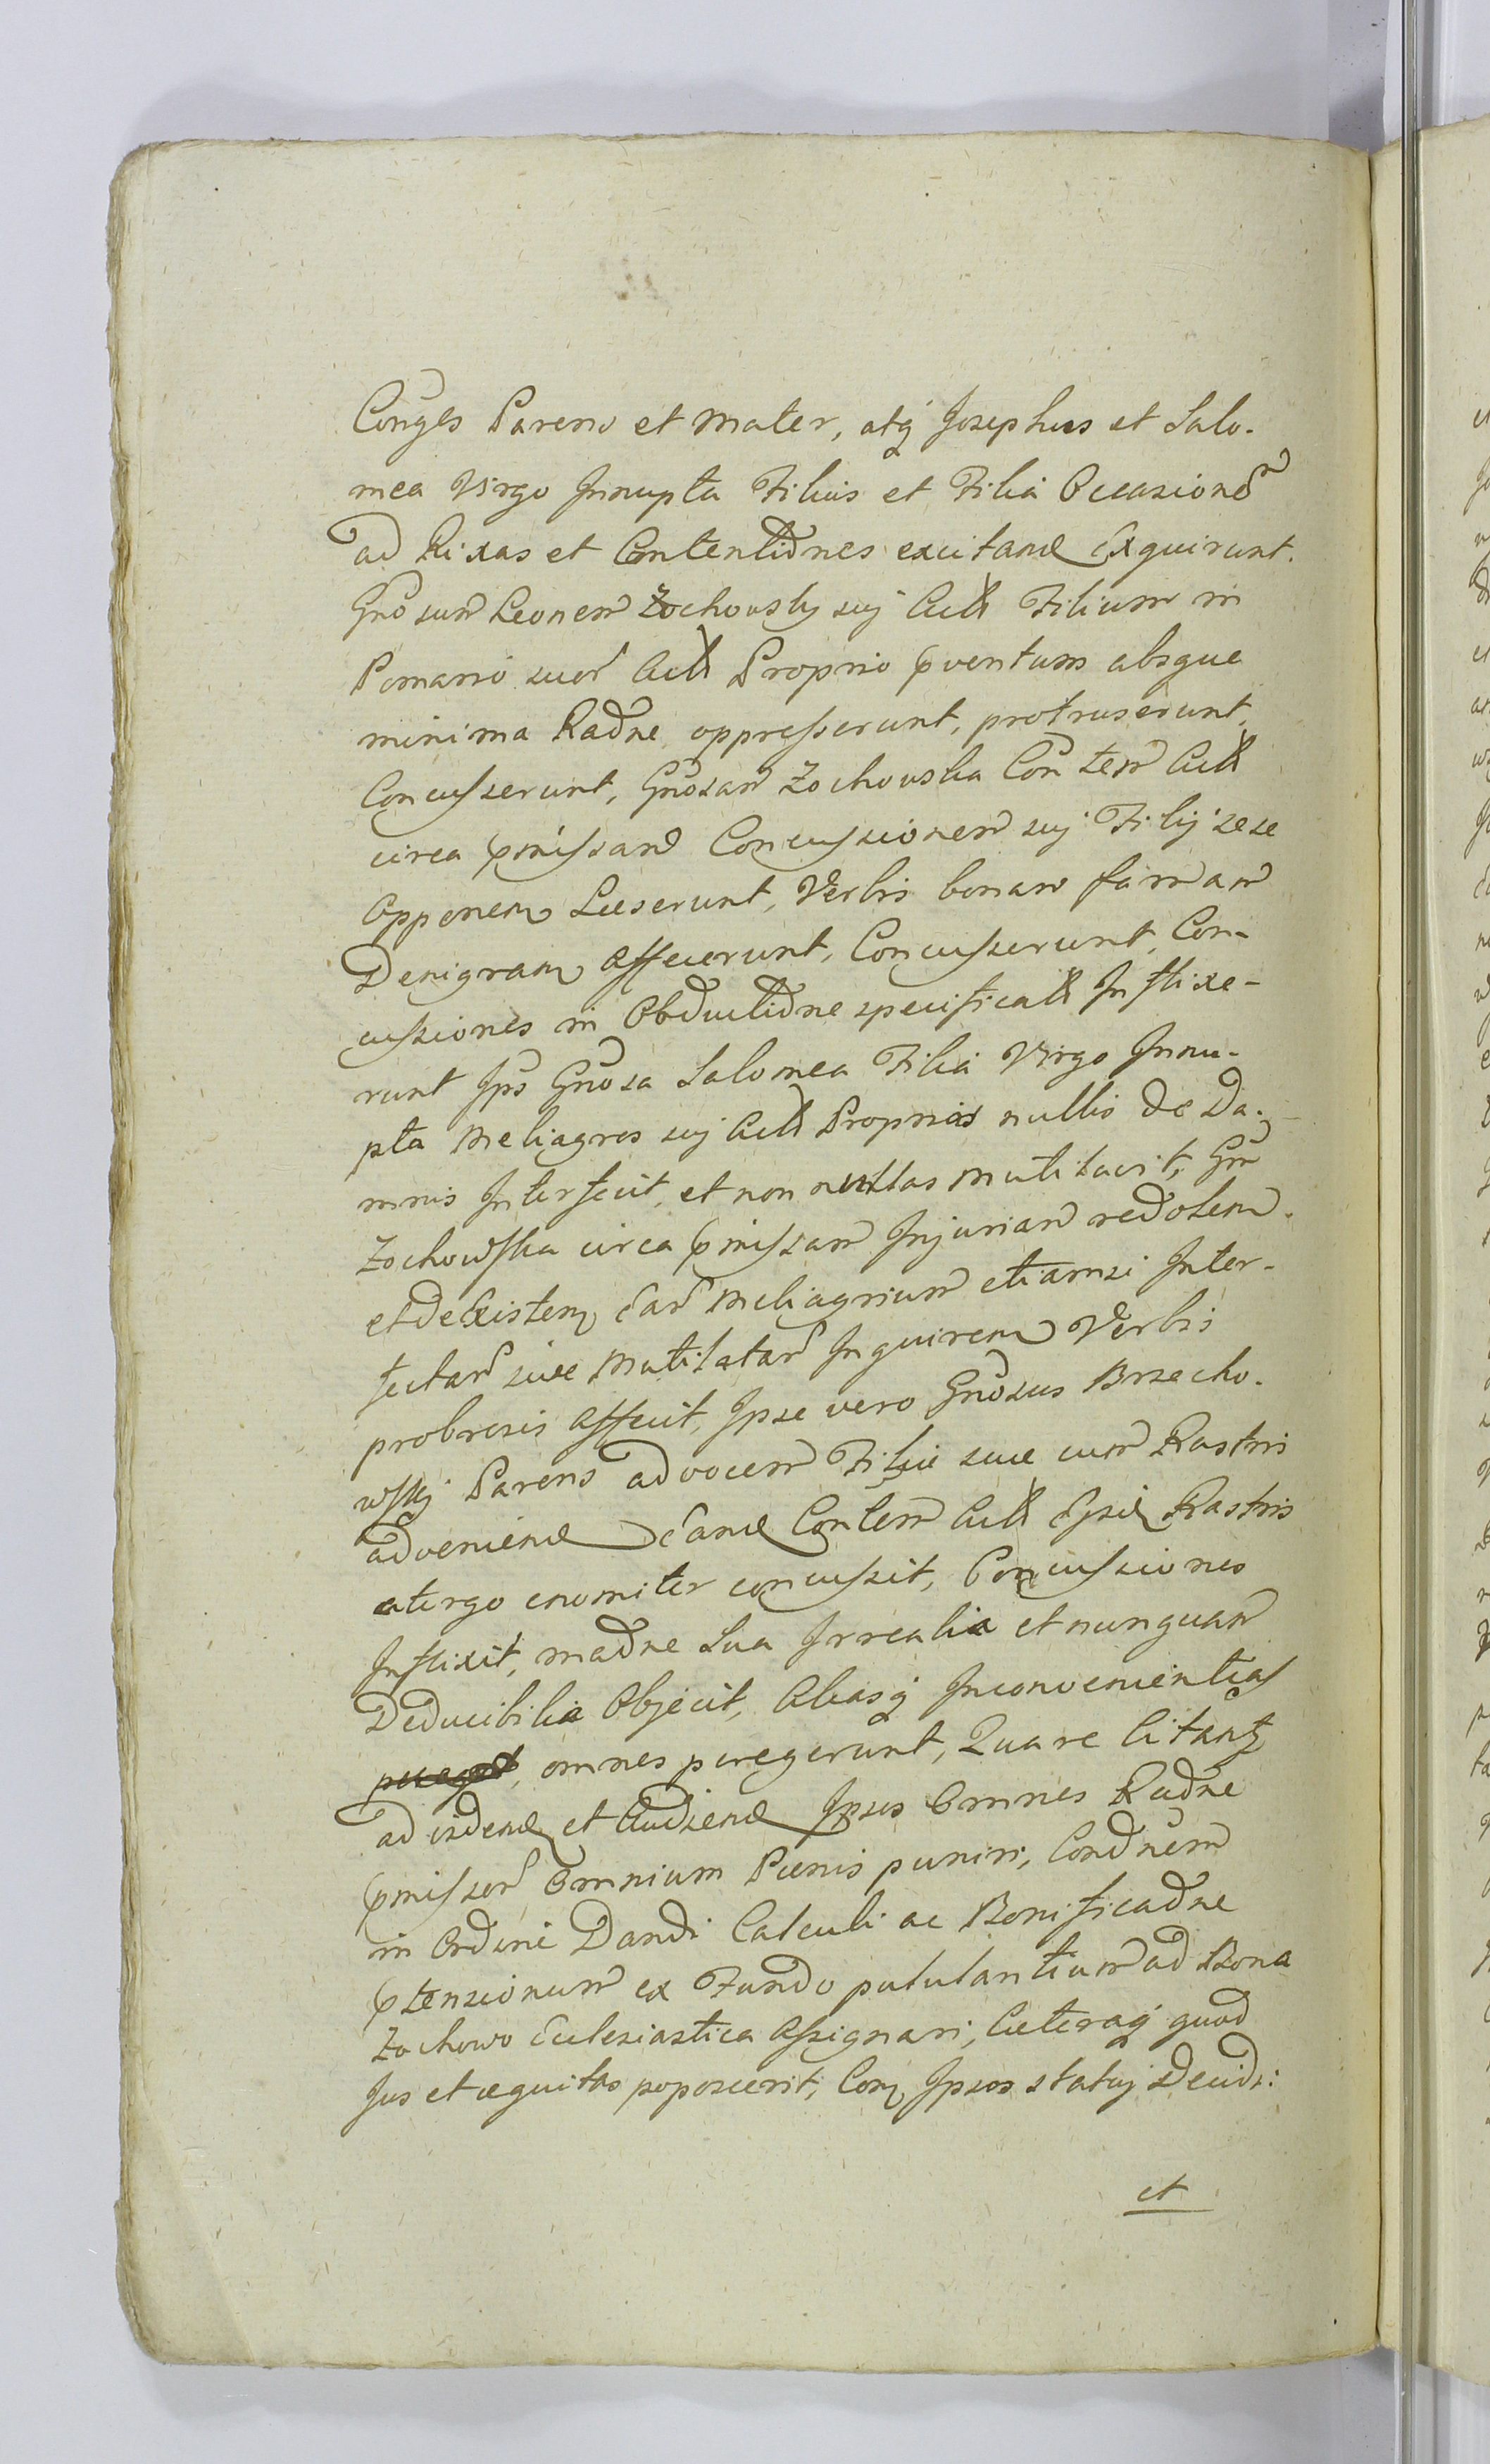 Conges Parens et mater, atq Josephus et Salo-
mea Virgo Innupta Filius et Filia Occasionem
ad Rixas et Contentiones excitand Exquirunt.
Gnosum Leonem Zochowsky suj Actt Filium in
Pomario suor Actt Proprio pventum absque
minima Raone, oppresserunt, protruserunt,
Concusserunt, Gnosam Zochowska Contem Actt
circa pmissam Concussionem suj Filij sese
Opponen Læserunt, Verbis bonam famam
Denigran Affecerunt, Concusserunt, Con-
cussiones in Obductione specificatt Inflixe-
runt Ips Gnosa Salomea Filia Virgo Innu-
pta meliagres suj Actt Proprias nullis de Da-
mnis Interfecit, et non nullas mutilavit, Gm
Zochowska circa pmissam Injuriam redolem
et de Existen Ear meliagrium etiamsi Inter-
fectar sive Mutilatar Inquiren Verbis
probrosis Affecit, Ipse vero Gnosus Brzecho-
wskj Parens ad vocem Filiæ suæ cum Rastris
adveniend Eand Contem Actt Ejsd Rastris
atergo enormiter concussit, Concussiones
Inflixit, maone Sua Irrealia et nunquam
Deducibilia Objecit, Aliasq Inconvenientias
omnes peregerunt, Quare Citantz
ad viddend et Audiend Ipsos Omnes Raone
pmissor Omnium Pænis puniri, Condnem
in Ordine Dandi Calculi ac Bonificaone
ptensionum ex Fundo pululantium ad Bona
Zochowo Eclesiastica Assignari, Cæteraq quod
Jus et æquitas poposcerit, Con Ipsos statuj Decidi:
et